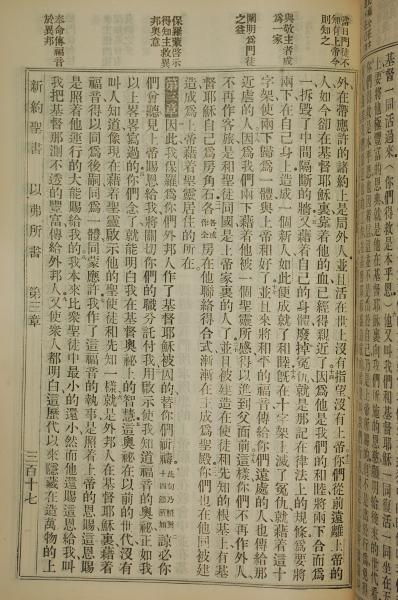 當日門徒不
知何用上帝今
則知之
與敬主者成
爲一家
闡明公門徒
之益
保羅蒙啓示
得知主救異
邦奧意
奉命傳福音
於異邦
外在帶應許的諸約上是局外人並且活在世上沒有指望沒有上帝你們從前遠離上帝的
人如今卻在基督耶穌裏靠着他的血已經得親近了因爲他是我們的和睦將兩下合而爲
一拆毀了中間隔斷的牆又藉着自己的身體廢掉冤仇就是那記在律法上的規條爲要將
兩下在自己身上造成一個新人如此便成就了和睦旣在十字架上滅了冤仇就藉着這十
字架使兩下歸爲一體與上帝和好了並且來將和平的福音傳給你們遠處的人也傳給那
近處的人因爲我們兩下藉着他被一個聖靈所感得以進到父面前這樣你們不再作外人
不再作客旅是和聖徒同國是上帝家裏的人了並且被建造在使徒和先知的根基上有基
督耶穌自己爲房角石各房在他聯絡得合式漸漸在主成爲聖殿你們也在他同被建
造成爲上帝藉着聖靈居住的所在
第三章因此我保羅爲你們外邦人作了基督耶穌被囚的替你們祈禱諒必你
們曾聽見上帝賜恩給我將關切你們的職分託付我用啟示使我知道福音的奧祕正如我
以上畧畧寫過的你們念了就能明白我在基督奧祕上的智慧這奧祕在以前的世代沒有
叫人知道像現在藉着聖靈啟示他的聖使徒和先知一樣就是外邦人在基督耶穌裏藉着
福音得以同爲後嗣同爲一體同蒙應許我作了這福音的執事是照着上帝的恩賜這恩賜
是照着他運行的大能賜給我的我本來比衆聖徒中最小的還小然而他還賜這恩給我叫
我把基督那測不透的豐富傳給外邦人又使衆人都明白這歷代以來隱藏在造萬物的上
新約聖書 以弗所書 第三章 三百十七